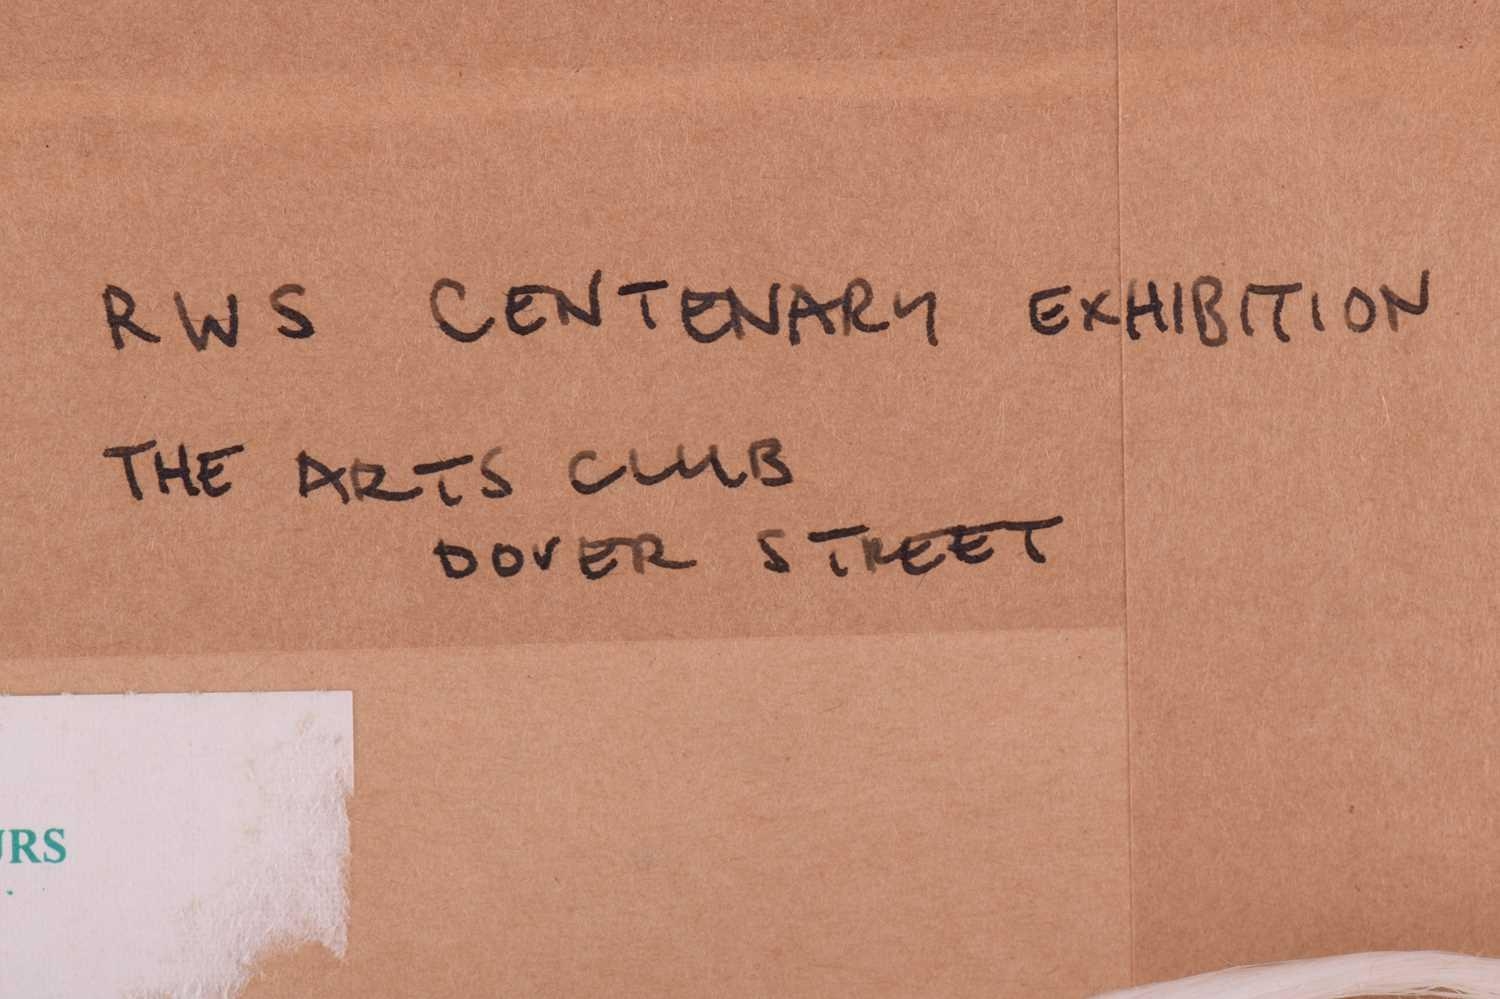 RWS CENTENARY EXHIBITION
THE ARTS CLUB
DOVER STREET
URS